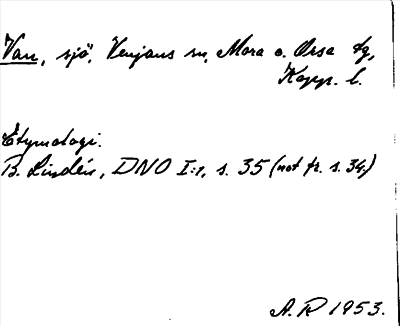 Van, sjö, Venjans sn, Mora o. Orsa tg,
Kopp. l.
Etymologi.
B. Lindén, DNO I:1, s. 35 (not fr. s. 34)
A. R 1953.